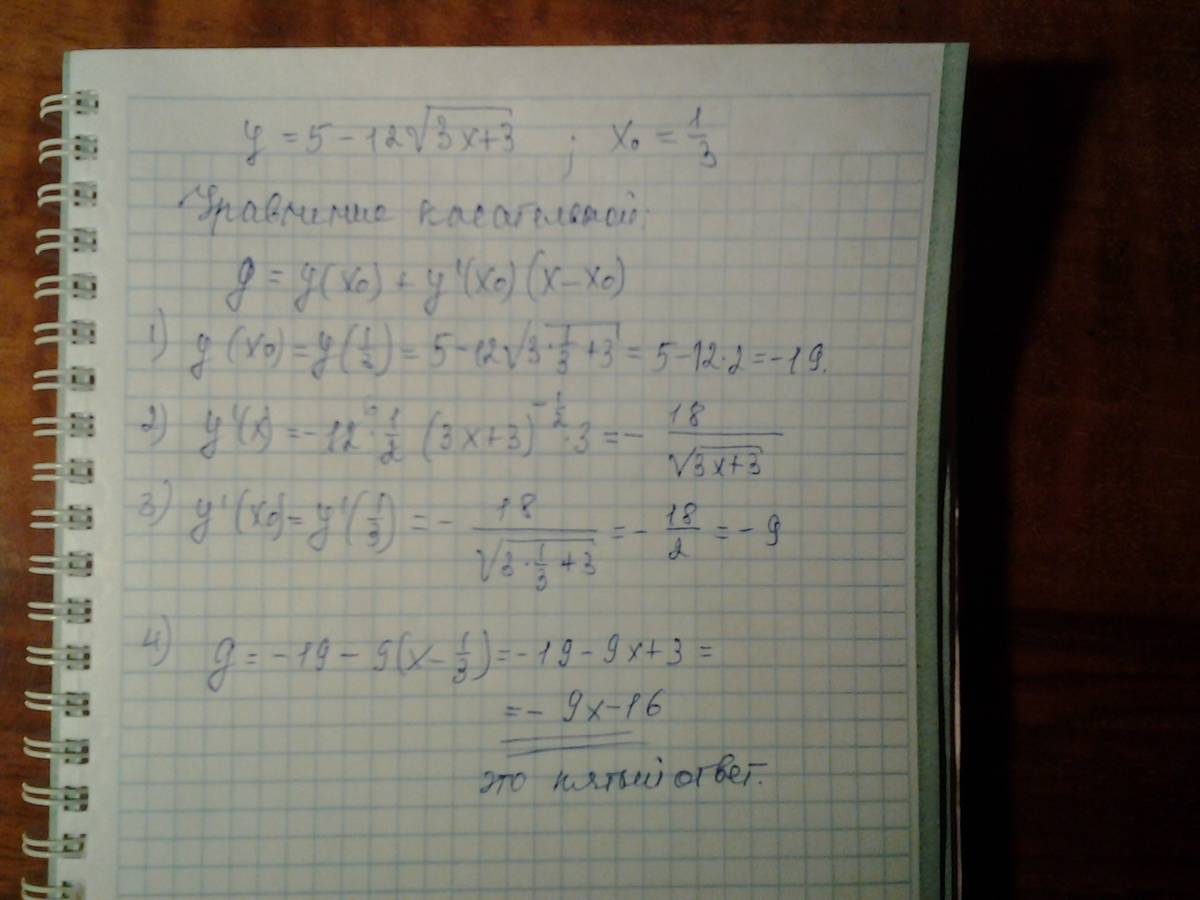 y = 5 − 12√(3x+3) ; x₀ = 1/3
Уравнение касательной:
y = y(x₀) + y'(x₀)(x−x₀)
1) y(x₀) = y(1/3) = 5−12√(3·1/3+3) = 5−12·2 = −19.
2) y'(x) = −12·1/2 (3x+3)^(−1/2)·3 = − 18/√(3x+3)
3) y'(x₀) = y'(1/3) = − 18/√(3·1/3+3) = − 18/2 = −9
4) y = −19 − 9(x−1/3) = −19−9x+3 =
= − 9x−16
это пятый ответ.